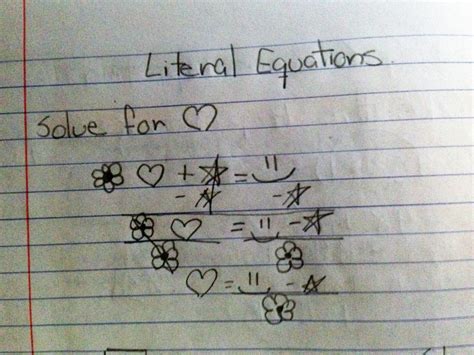 Literal Equations.
Solve for ♡
❀ ♡ + ☆ = ‿̈
- ☆ - ☆
❀ ♡ = ‿̈ - ☆
❀ ❀
♡ = ‿̈ - ☆
❀